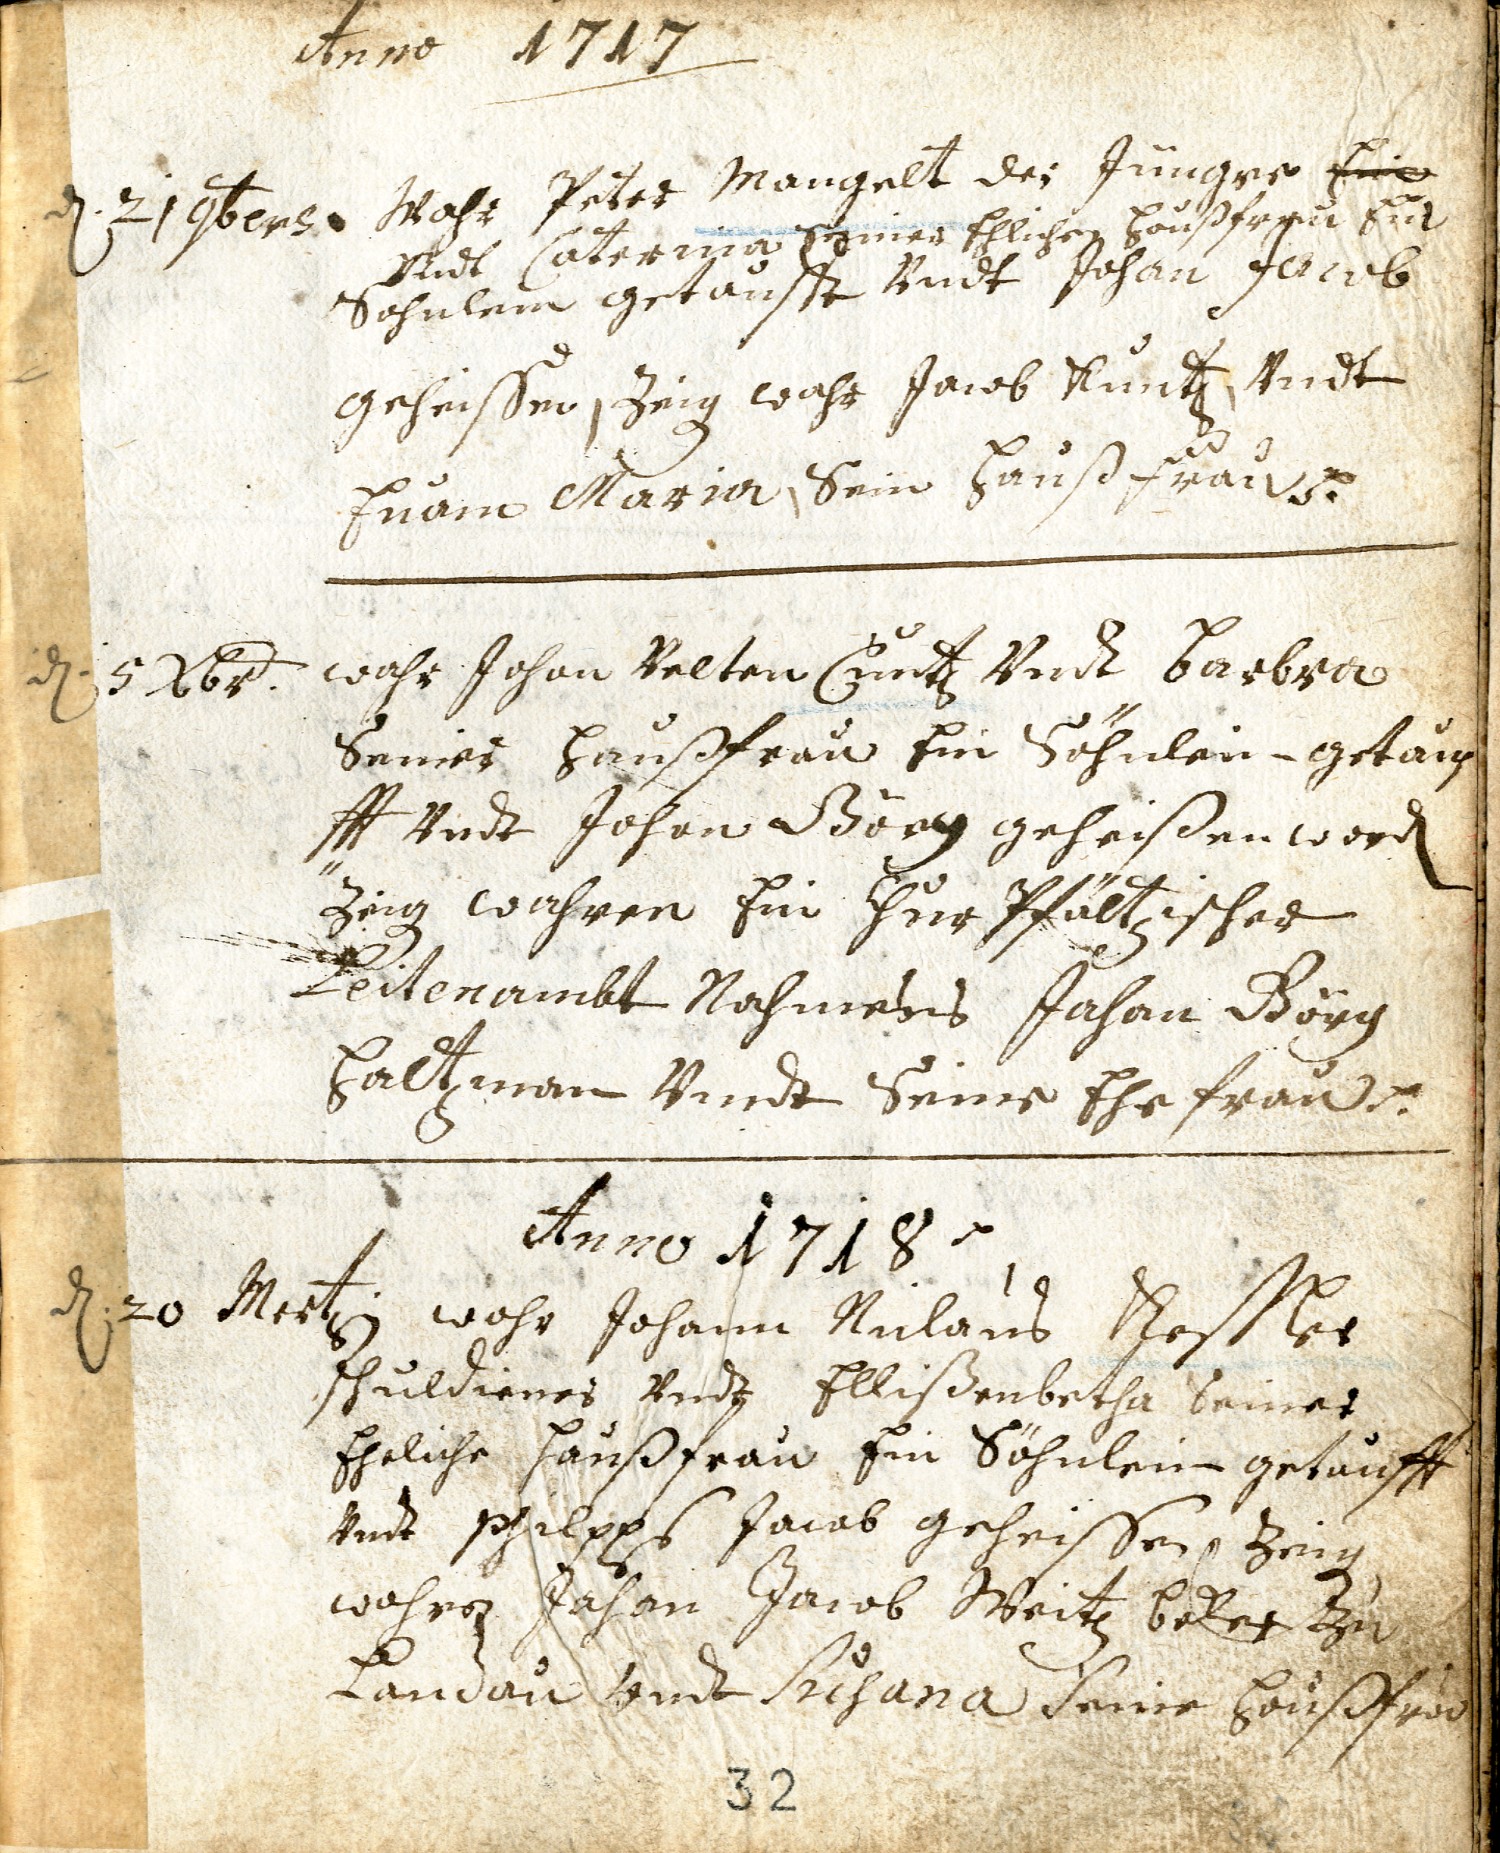 Anno 1717
d. 21 9bers Wahr Peter Mangelt der Jüngre Ein
Vndt Caterina Seiner Ehlichen haußfrau Ein
Sohnlein getaufft Vndt Johan Jacob
geheissen, Zeig wahr Jacob Kuntz, Vndt
Euam Maria, Sein haußfrau
d. 5 Xbr. wahr Johan Velten Cuntz Vndt barbra
Seiner haußfrau Ein Söhnlein getauf
fft Vndt Johan Görg geheißen word
Zeig wahren Ein Chur Pfältzischer
Leitenambt Nahmens Johan Görg
Haltzman Vndt Seine Ehe frau
Anno 1718
d. 20 Mertz wahr Johann Niclaus
schuldiener Vndt Ellißenbetha Seiner
Eheliche haußfrau Ein Söhnlein getaufft
Vndt Philpps Jacob geheissen Zeig
wahren Johan Jacob Weitz beker Zu
Landau Vndt Susana Seine haußfrau
32